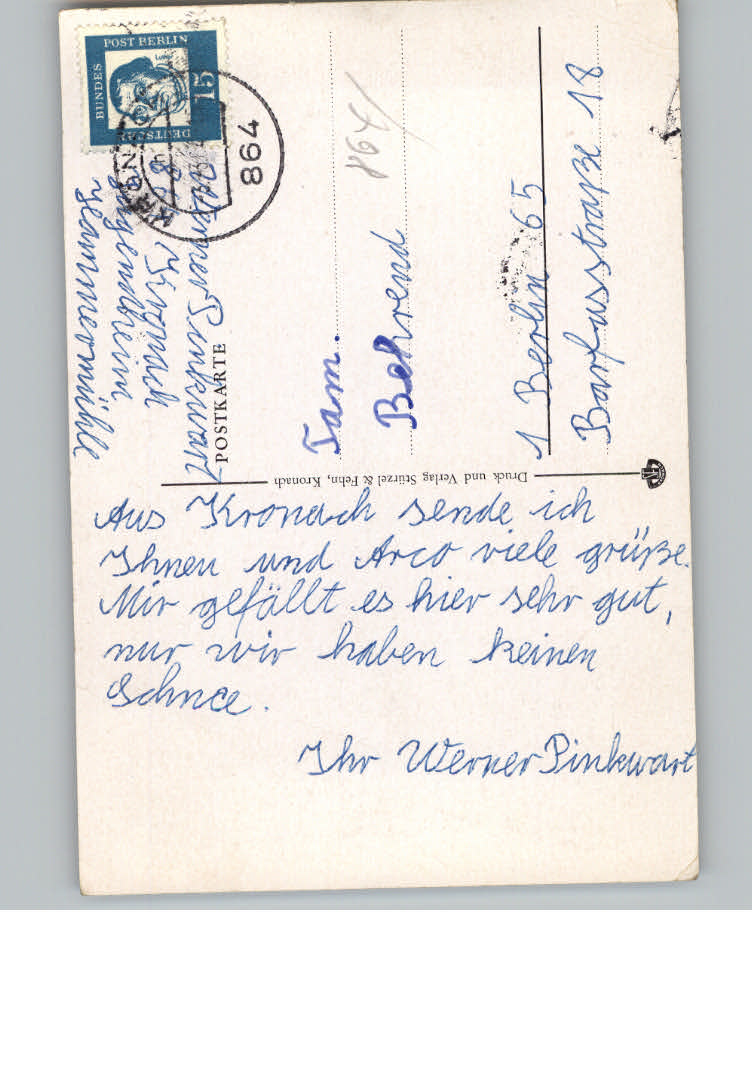 DEUTSCHE
BUNDES
POST BERLIN
15
Luther
KRONACH
864
864
Werner Pinkwart
8
Kronach
Jugendheim
Hammermühle
POSTKARTE
Fam.
Behrend
1 Berlin 65
Barfusstraße 18
Druck und Verlag Stürzel & Fehn, Kronach
Aus Kronach sende ich
Ihnen und Arco viele grüße.
Mir gefällt es hier sehr gut,
nur wir haben keinen
Schnee.
Ihr Werner Pinkwart